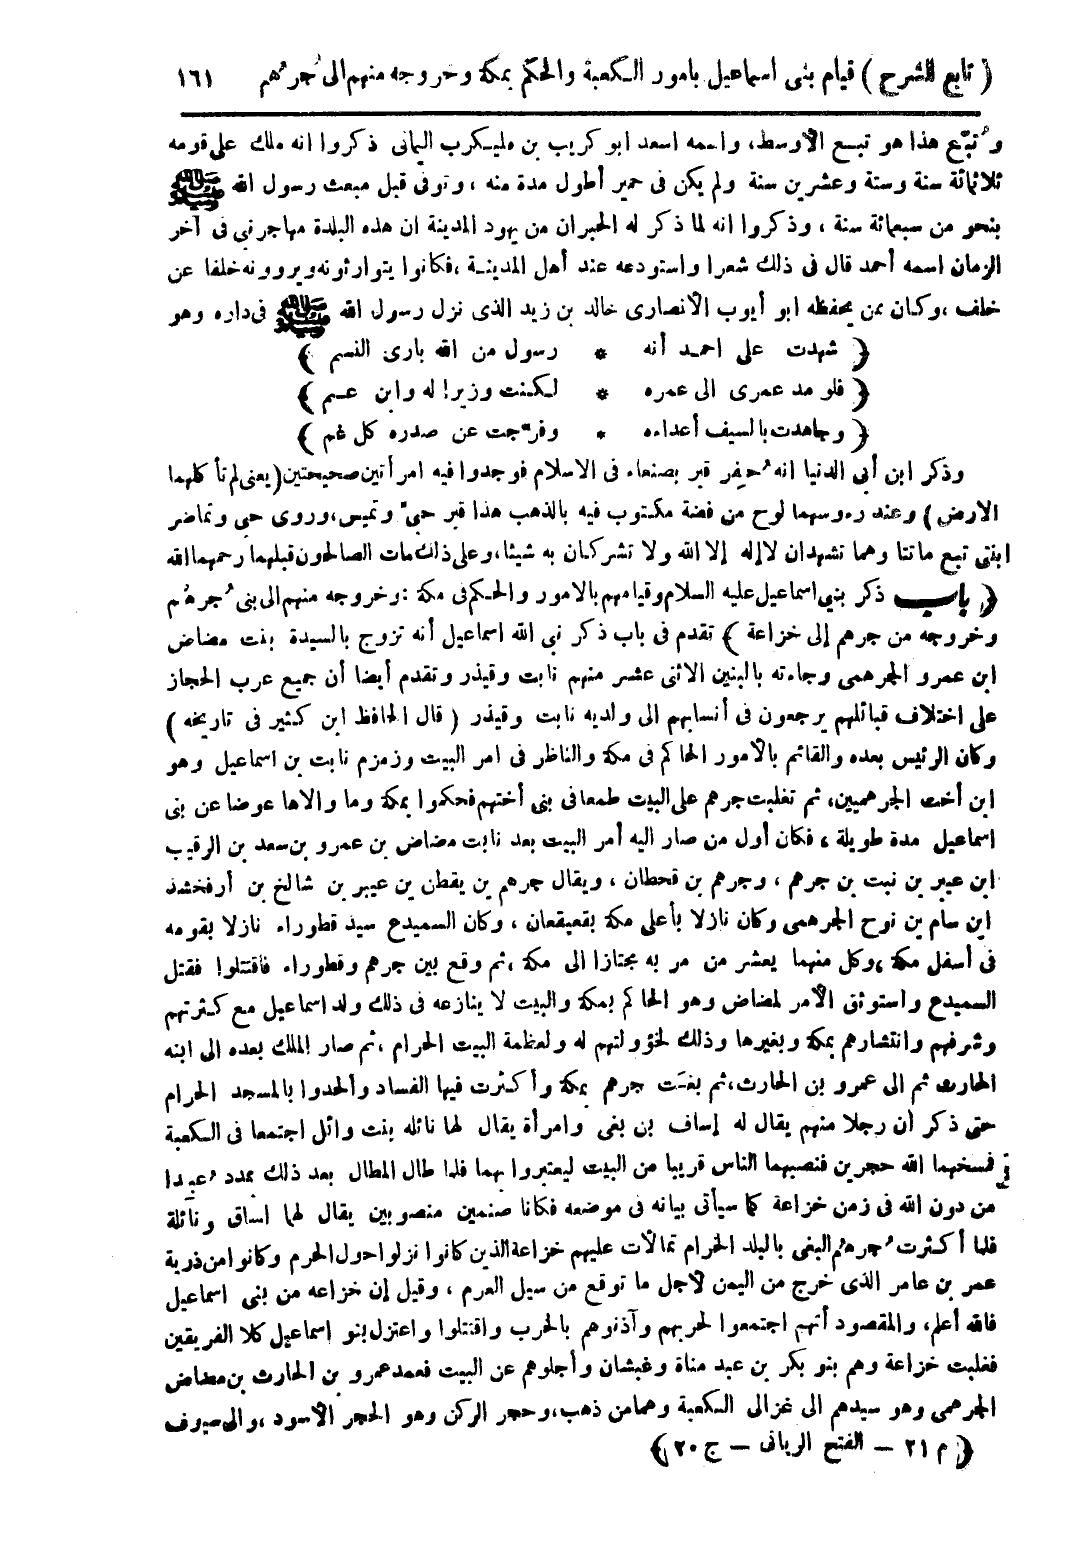 ( تابع الشرح ) قيام بنى اسماعيل بامور الكعبة والحكم بمكة وخروجه منهم الى جُرْهم ١٦١
وتُبّع هذا هو تبع الأوسط، واسمه اسعد ابو كريب بن مليكرب اليمانى ذكروا انه ملك على قومه
ثلاثمائة سنة وستة وعشرين سنة ولم يكن فى حمير أطول مدة منه ، وتوفى قبل مبعث رسول الله ﷺ
بنحو من سبعمائة سنة ، وذكروا انه لما ذكر له الحبران من يهود المدينة ان هذه البلدة مهاجر نبي فى آخر
الزمان اسمه أحمد قال فى ذلك شعرا واستودعه عند أهل المدينة ،فكانوا يتوارثونه ويروونه خلفا عن
خلف ،وكان ممن يحفظه ابو أيوب الأنصارى خالد بن زيد الذى نزل رسول الله ﷺ فى داره وهو
﴿ شهدت على احمد أنه * رسول من الله بارى النسم ﴾
﴿ فلو مد عمرى الى عمره * لكنت وزيرا له وابن عم ﴾
﴿ وجاهدت بالسيف أعداءه * وفرّجت عن صدره كل غم ﴾
وذكر ابن أبى الدنيا انه حُفِر قبر بصنعاء فى الاسلام فوجدوا فيه امرأتين صحيحتين (يعنى لم تأكلهما
الارض) وعند رءوسهما لوح من فضة مكتوب فيه بالذهب هذا قبر حىّ وتميس،وروى حى وتماضر
ابنتى تبع ماتتا وهما تشهدان لا إله إلا الله ولا تشركان به شيئا،وعلى ذلك مات الصالحون قبلهما رحمهما الله
﴿ باب ذكر بنى اسماعيل عليه السلام وقيامهم بالامور والحكم فى مكة :وخروجه منهم الى بنى جُرهُم
وخروجه من جرهم إلى خزاعة ﴾ تقدم فى باب ذكر نبى الله اسماعيل أنه تزوج بالسيدة بنت مضاض
ابن عمرو الجرهمى وجاءته بالبنين الاثنى عشر منهم نابت وقيذر وتقدم أيضا أن جميع عرب الحجاز
على اختلاف قبائلهم يرجعون فى أنسابهم الى ولديه نابت وقيذر ( قال الحافظ ابن كثير فى تاريخه )
وكان الرئيس بعده والقائم بالأمور الحاكم فى مكة والناظر فى امر البيت وزمزم نابت بن اسماعيل وهو
ابن أخت الجرهميين، ثم تغلبت جرهم على البيت طمعا فى بنى أختهم فحكموا بمكة وما والاها عوضا عن بنى
اسماعيل مدة طويلة ، فكان أول من صار اليه أمر البيت بعد نابت مضاض بن عمرو بن سعد بن الرقيب
ابن عيبر بن نبت بن جرهم ، وجرهم بن قحطان ، ويقال جرهم بن يقطن بن عيبر بن شالخ بن أرفخشذ
ابن سام بن نوح الجرهمى وكان نازلا بأعلى مكة بقعيقعان ، وكان السميدع سيد قطوراء نازلا بقومه
فى أسفل مكة ،وكل منهما يعشر من مر به مجتازا الى مكة ،ثم وقع بين جرهم وقطوراء فاقتتلوا فقتل
السميدع واستوثق الأمر لمضاض وهو الحاكم بمكة والبيت لا ينازعه فى ذلك ولد اسماعيل مع كثرتهم
وشرفهم وانتشارهم بمكة وبغيرها وذلك لخؤولتهم له ولعظمة البيت الحرام ،ثم صار الملك بعده الى ابنه
الحارث ثم الى عمرو بن الحارث،ثم بغت جرهم بمكة وأكثرت فيها الفساد وألحدوا بالمسجد الحرام
حتى ذكر أن رجلا منهم يقال له إساف بن بغى وامرأة يقال لها نائله بنت وائل اجتمعا فى الكعبة
فمسخهما الله حجرين فنصبهما الناس قريبا من البيت ليعتبروا بهما فلما طال المطال بعد ذلك بمدد عُبدا
من دون الله فى زمن خزاعة كما سيأتى بيانه فى موضعه فكانا صنمين منصوبين يقال لهما اساق ونائلة
فلما أكثرت جُرهُم البغى بالبلد الحرام تمالأت عليهم خزاعة الذين كانوا نزلوا حول الحرم وكانوا من ذرية
عمر بن عامر الذى خرج من اليمن لاجل ما توقع من سيل العرم ، وقيل إن خزاعه من بنى اسماعيل
فالله أعلم، والمقصود أنهم اجتمعوا لحربهم وآذنوهم بالحرب واقتتلوا واعتزل بنو اسماعيل كلا الفريقين
فغلبت خزاعة وهم بنو بكر بن عبد مناة وغبشان وأجلوهم عن البيت فعمد عمرو بن الحارث بن مضاض
الجرهمى وهو سيدهم الى غزالى الكعبة وهما من ذهب،وحجر الركن وهو الحجر الأسود ،والى سيوف
﴿ م ٢١ — الفتح الربانى — ج ٢٠ ﴾